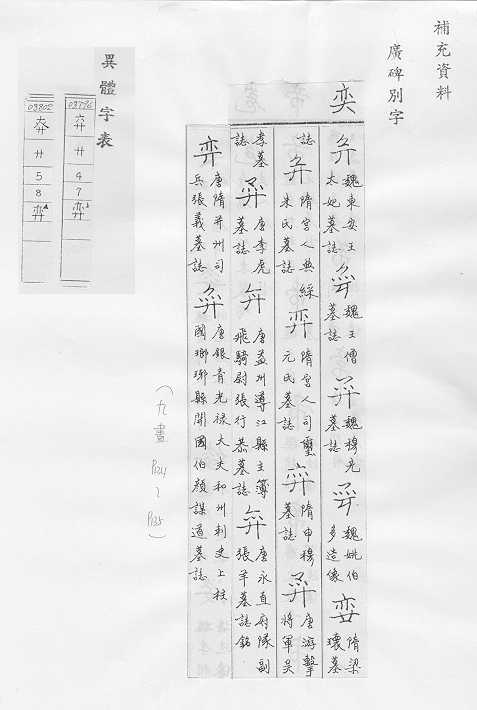 補充資料
廣碑別字
奕
魏東安王
太妃墓誌
魏王僧
墓誌
魏穆亮
墓誌
魏姚伯
多造像
隋梁
瓌墓
誌
隋宮人典綵
朱氏墓誌
隋宮人司璽
元氏墓誌
隋申穆
墓誌
唐游擊
將軍吳
孝墓
誌
唐李虎
墓誌
唐益州導江縣主簿
飛騎尉張行恭墓誌
唐永直府隊副
張羊墓誌銘
唐隋并州司
兵張義墓誌
唐銀青光祿大夫和州刺史上柱
國瑯琊縣開國伯顏謀道墓誌
(九畫 P124~P125)
異體字表
03796
廾
4
7
03802
廾
5
8